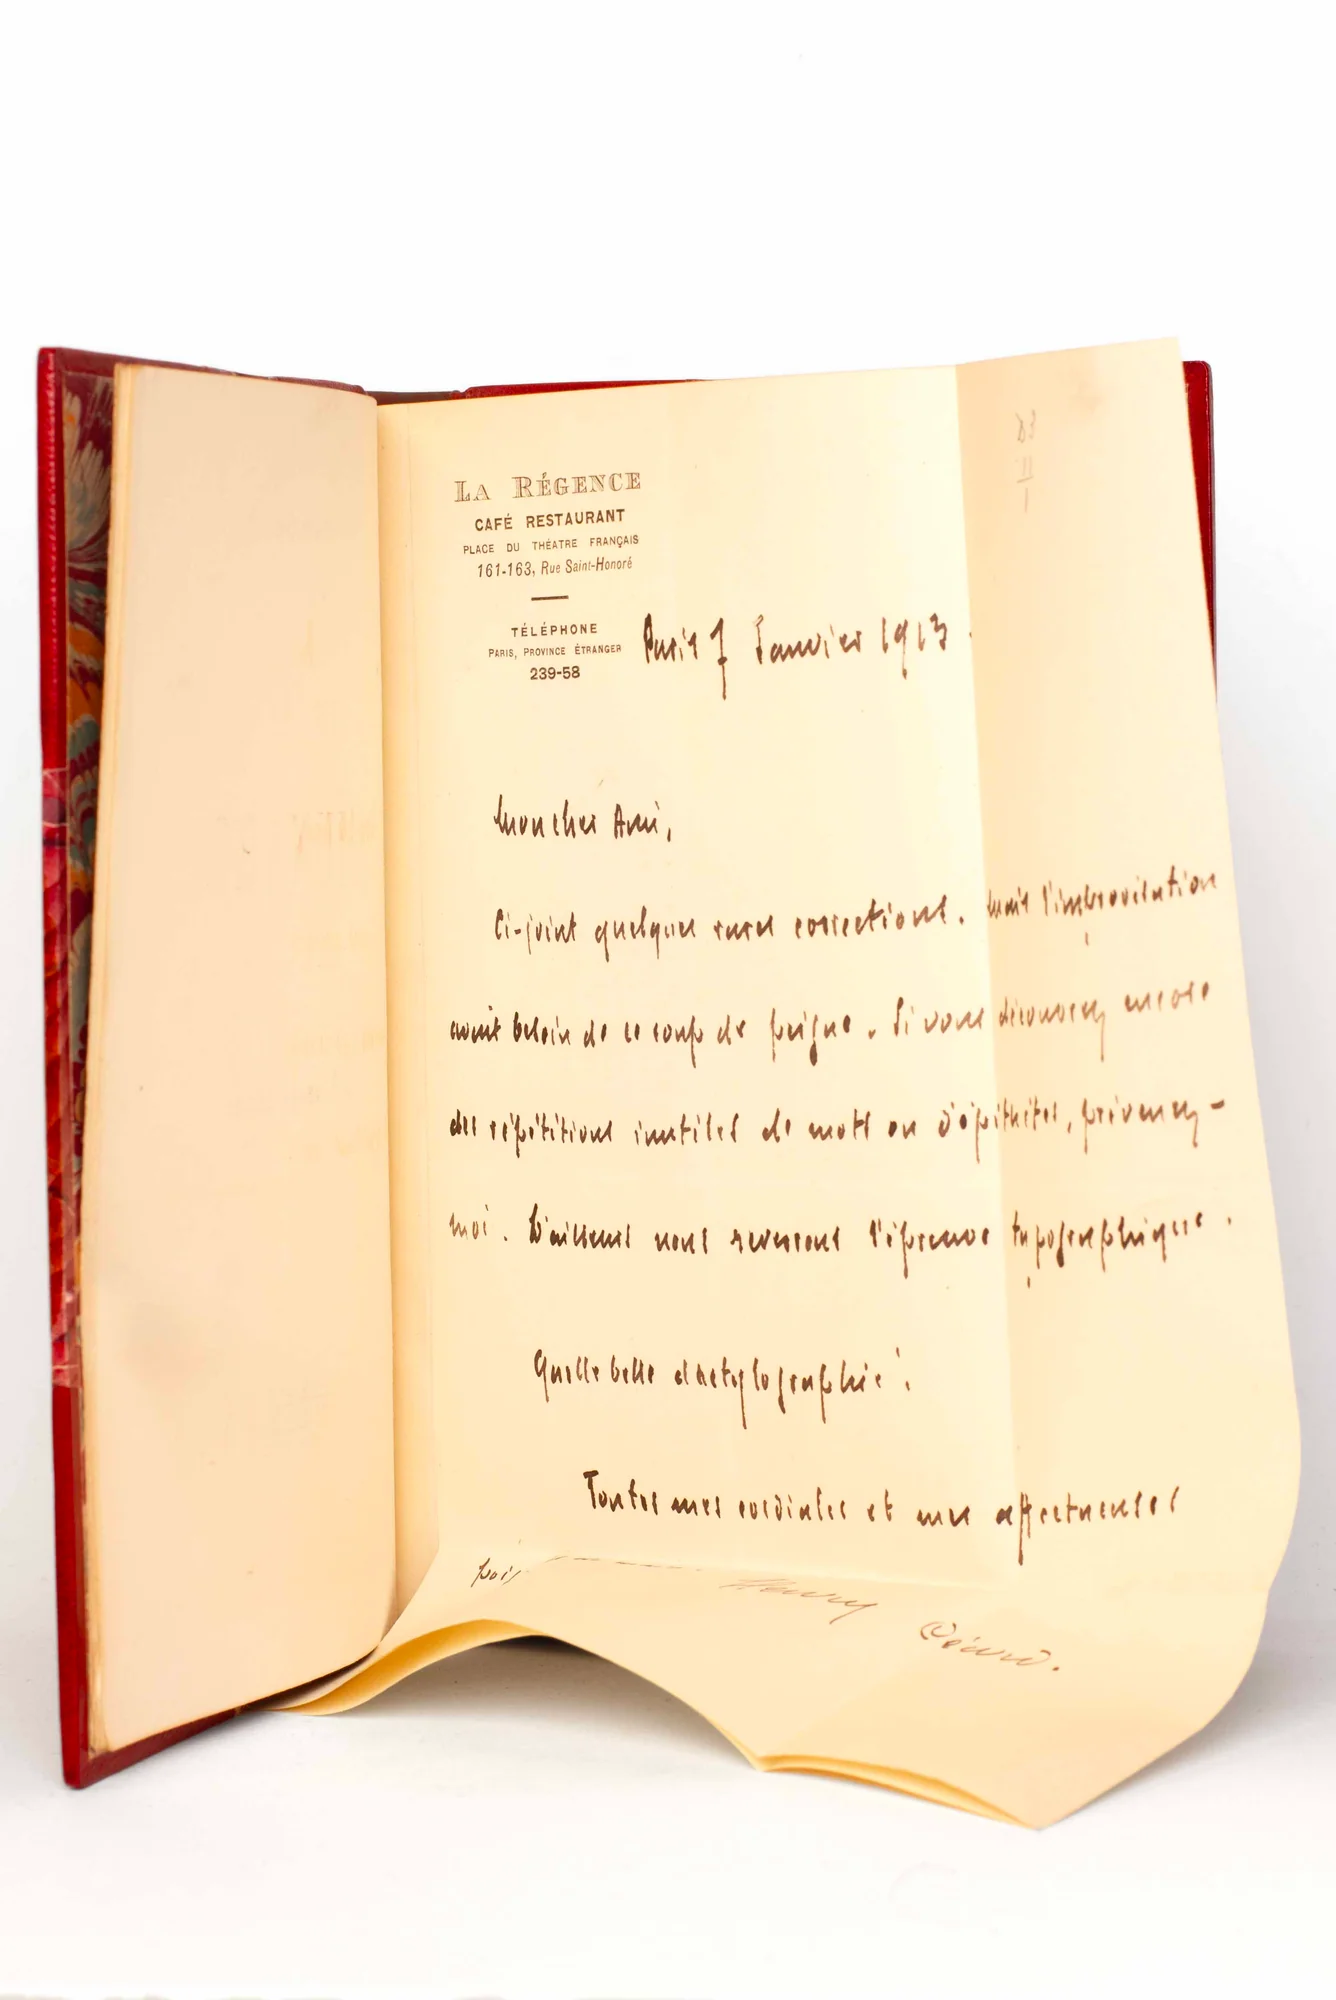 LA RÉGENCE
CAFÉ RESTAURANT
PLACE DU THÉATRE FRANÇAIS
161-163, Rue Saint-Honoré
TÉLÉPHONE
PARIS, PROVINCE ÉTRANGER
239-58
Paris 7 Janvier 1913.
Mon cher Ami,
Ci-joint quelques rares corrections. Mais l'improvisation
avait besoin de ce coup de peigne. Si vous découvrez encore
des répétitions inutiles de mots ou d'épithètes, prévenez-
moi. D'ailleurs nous reverrons l'épreuve typographique.
Quelle belle dactylographie!
Toutes mes cordiales et mes affectueuses
Henry